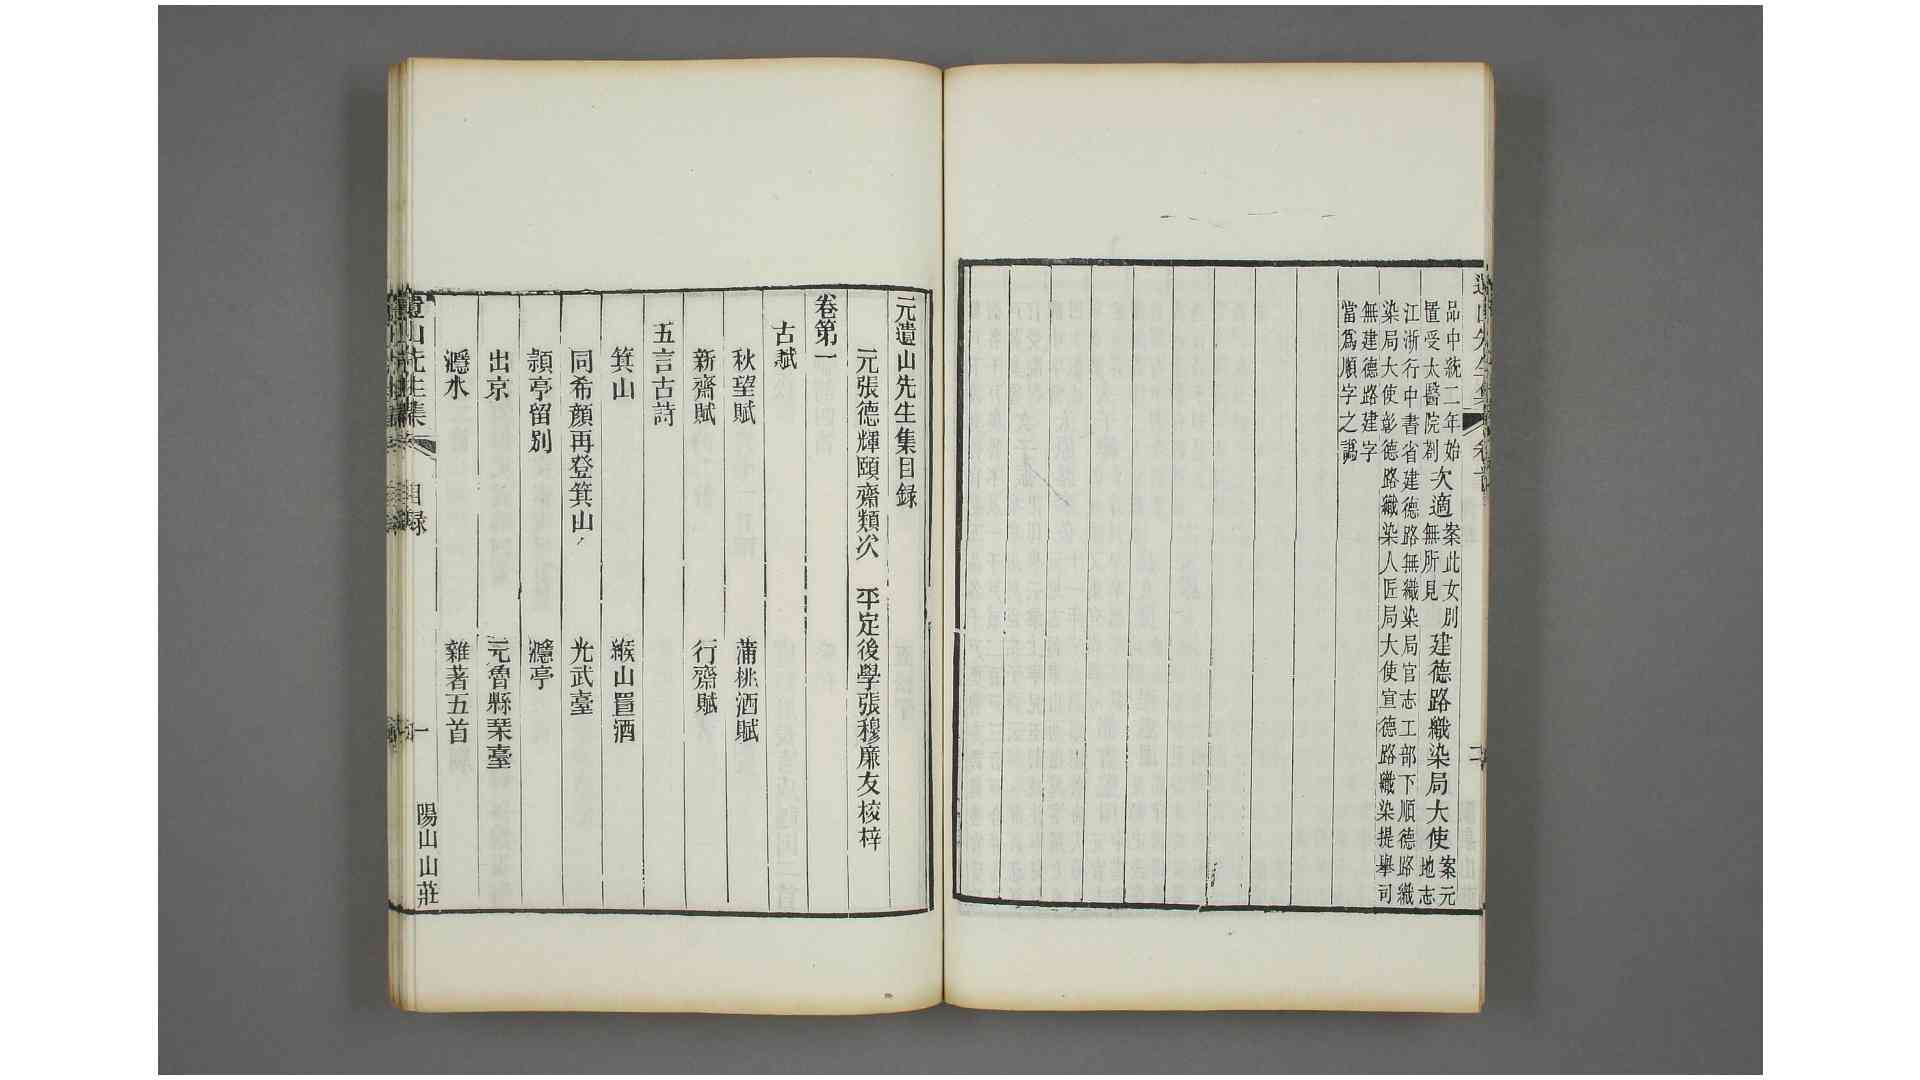 品中統二年始
置受太醫院劄
次適
案此女別
無所見
建德路織染局大使
案元
地志
江浙行中書省建德路無織染局官志工部下順德路織
染局大使彰德路織染人匠局大使宣德路織染提舉司
無建德路建字
當爲順字之譌
元遺山先生集目録
元張德輝頤齋類次　平定後學張穆廉友校梓
卷第一
古賦
秋望賦　蒲桃酒賦
新齋賦　行齋賦
五言古詩
箕山　緱山置酒
同希顏再登箕山　光武臺
潁亭留別　㶏亭
出京　元魯縣琴臺
㶏水　雜著五首
遺山先生集
目録
一
陽山山莊